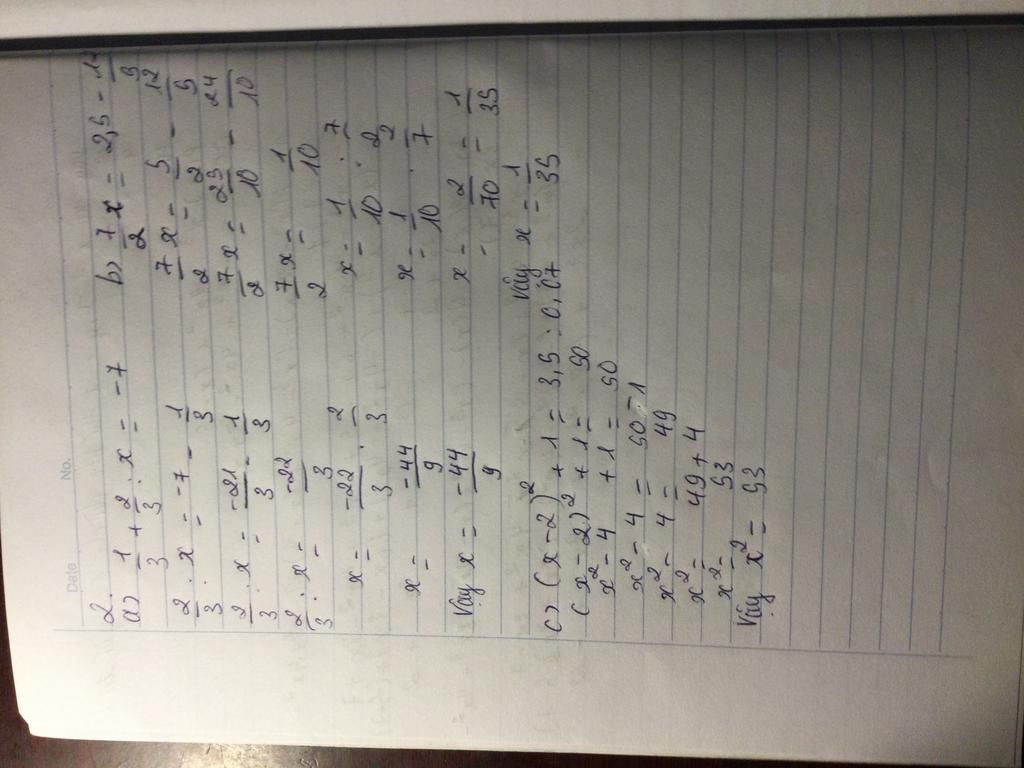 Date No.
2.
a) 1/3 + 2/3 . x = -7
2/3 . x = -7 - 1/3
2/3 . x = -21/3 - 1/3
2/3 . x = -22/3
x = -22/3 . 2/3
x = -44/9
Vậy x = -44/9
b) 7/2 x = 2,5 - 12/5
7/2 x = 5/2 - 12/5
7/2 x = 25/10 - 24/10
7/2 x = 1/10
x = 1/10 : 7/2
x = 1/10 . 2/7
x = 2/70 = 1/35
Vậy x = 1/35
c) (x-2)² + 1 = 3,5 : 0,07
(x-2)² + 1 = 50
x² - 4 + 1 = 50
x² - 4 = 50 - 1
x² - 4 = 49
x² = 49 + 4
x² = 53
Vậy x² = 53